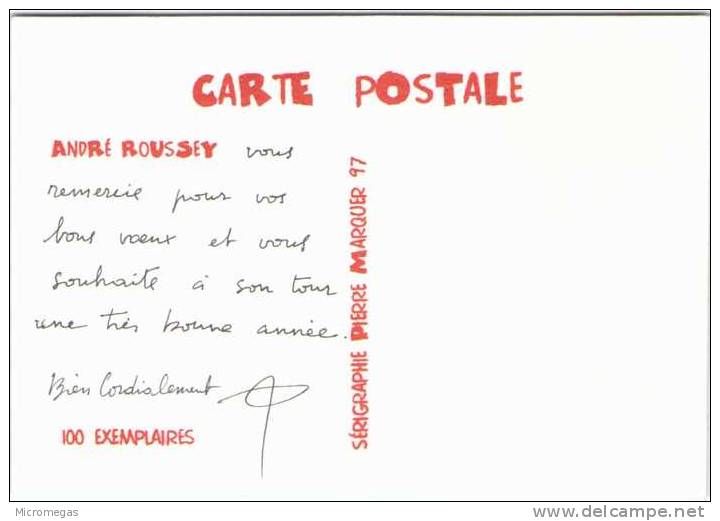 CARTE POSTALE
ANDRÉ ROUSSEY vous
remercie pour vos
bons vœux et vous
souhaite à son tour
une très bonne année.
Bien Cordialement
100 EXEMPLAIRES
SÉRIGRAPHIE PIERRE MARQUER 97
Micromegas
delcampe.net